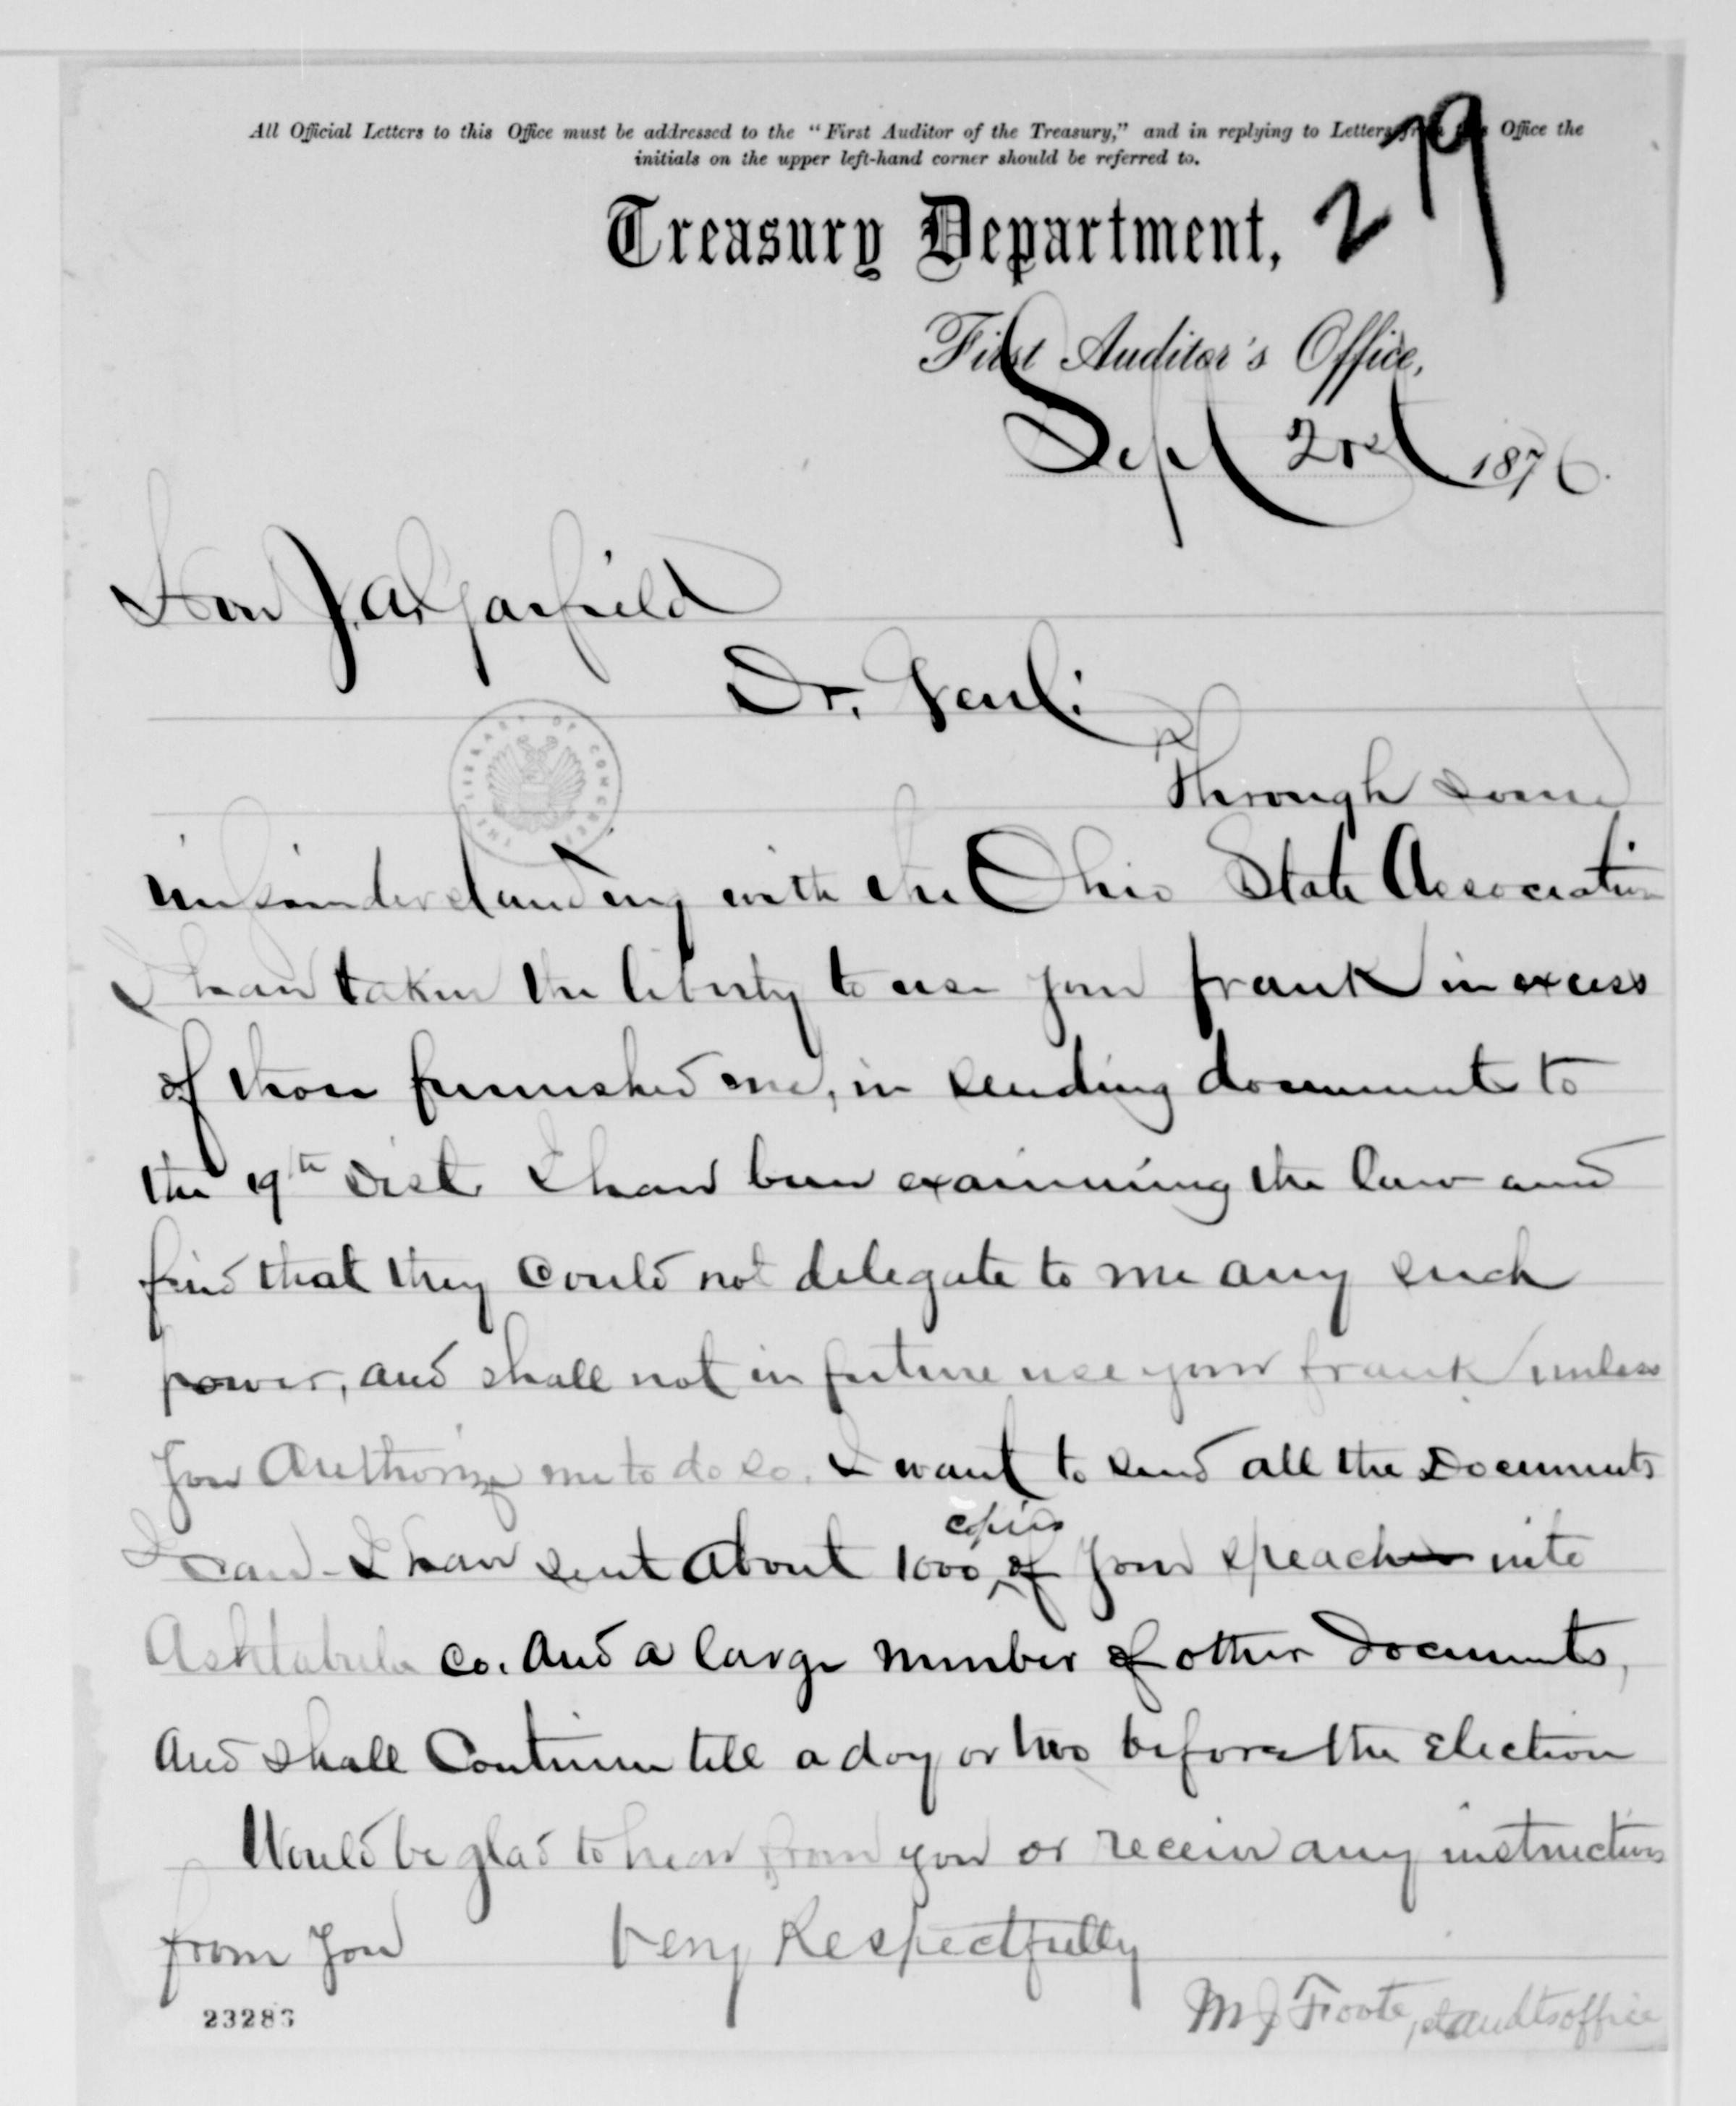 All Official Letters to this Office must be addressed to the "First Auditor of the Treasury," and in replying to Letters from this Office the
initials on the upper left-hand corner should be referred to.
29
Treasury Department,
First Auditor's Office,
Sept 1876.
Hon J. A. Garfield
Dr. Genl:
THE LIBRARY OF CONGRESS
Through some
misunderstanding with the Ohio State Association
I have taken the liberty to use your frank in excess
of those furnished me, in sending documents to
the 19th Dist. I have been examining the law and
find that they could not delegate to me any such
power, and shall not in future use your frank unless
you Authorize me to do so. I want to send all the Documents
I can - I have sent about 1000 copies of your speach into
Ashtabula Co. And a large number of other Documents,
And shall Continue till a day or two before the Election
Would be glad to hear from you or receive any instructions
from you Very Respectfully
M J Foote, 1st Audts office
23286